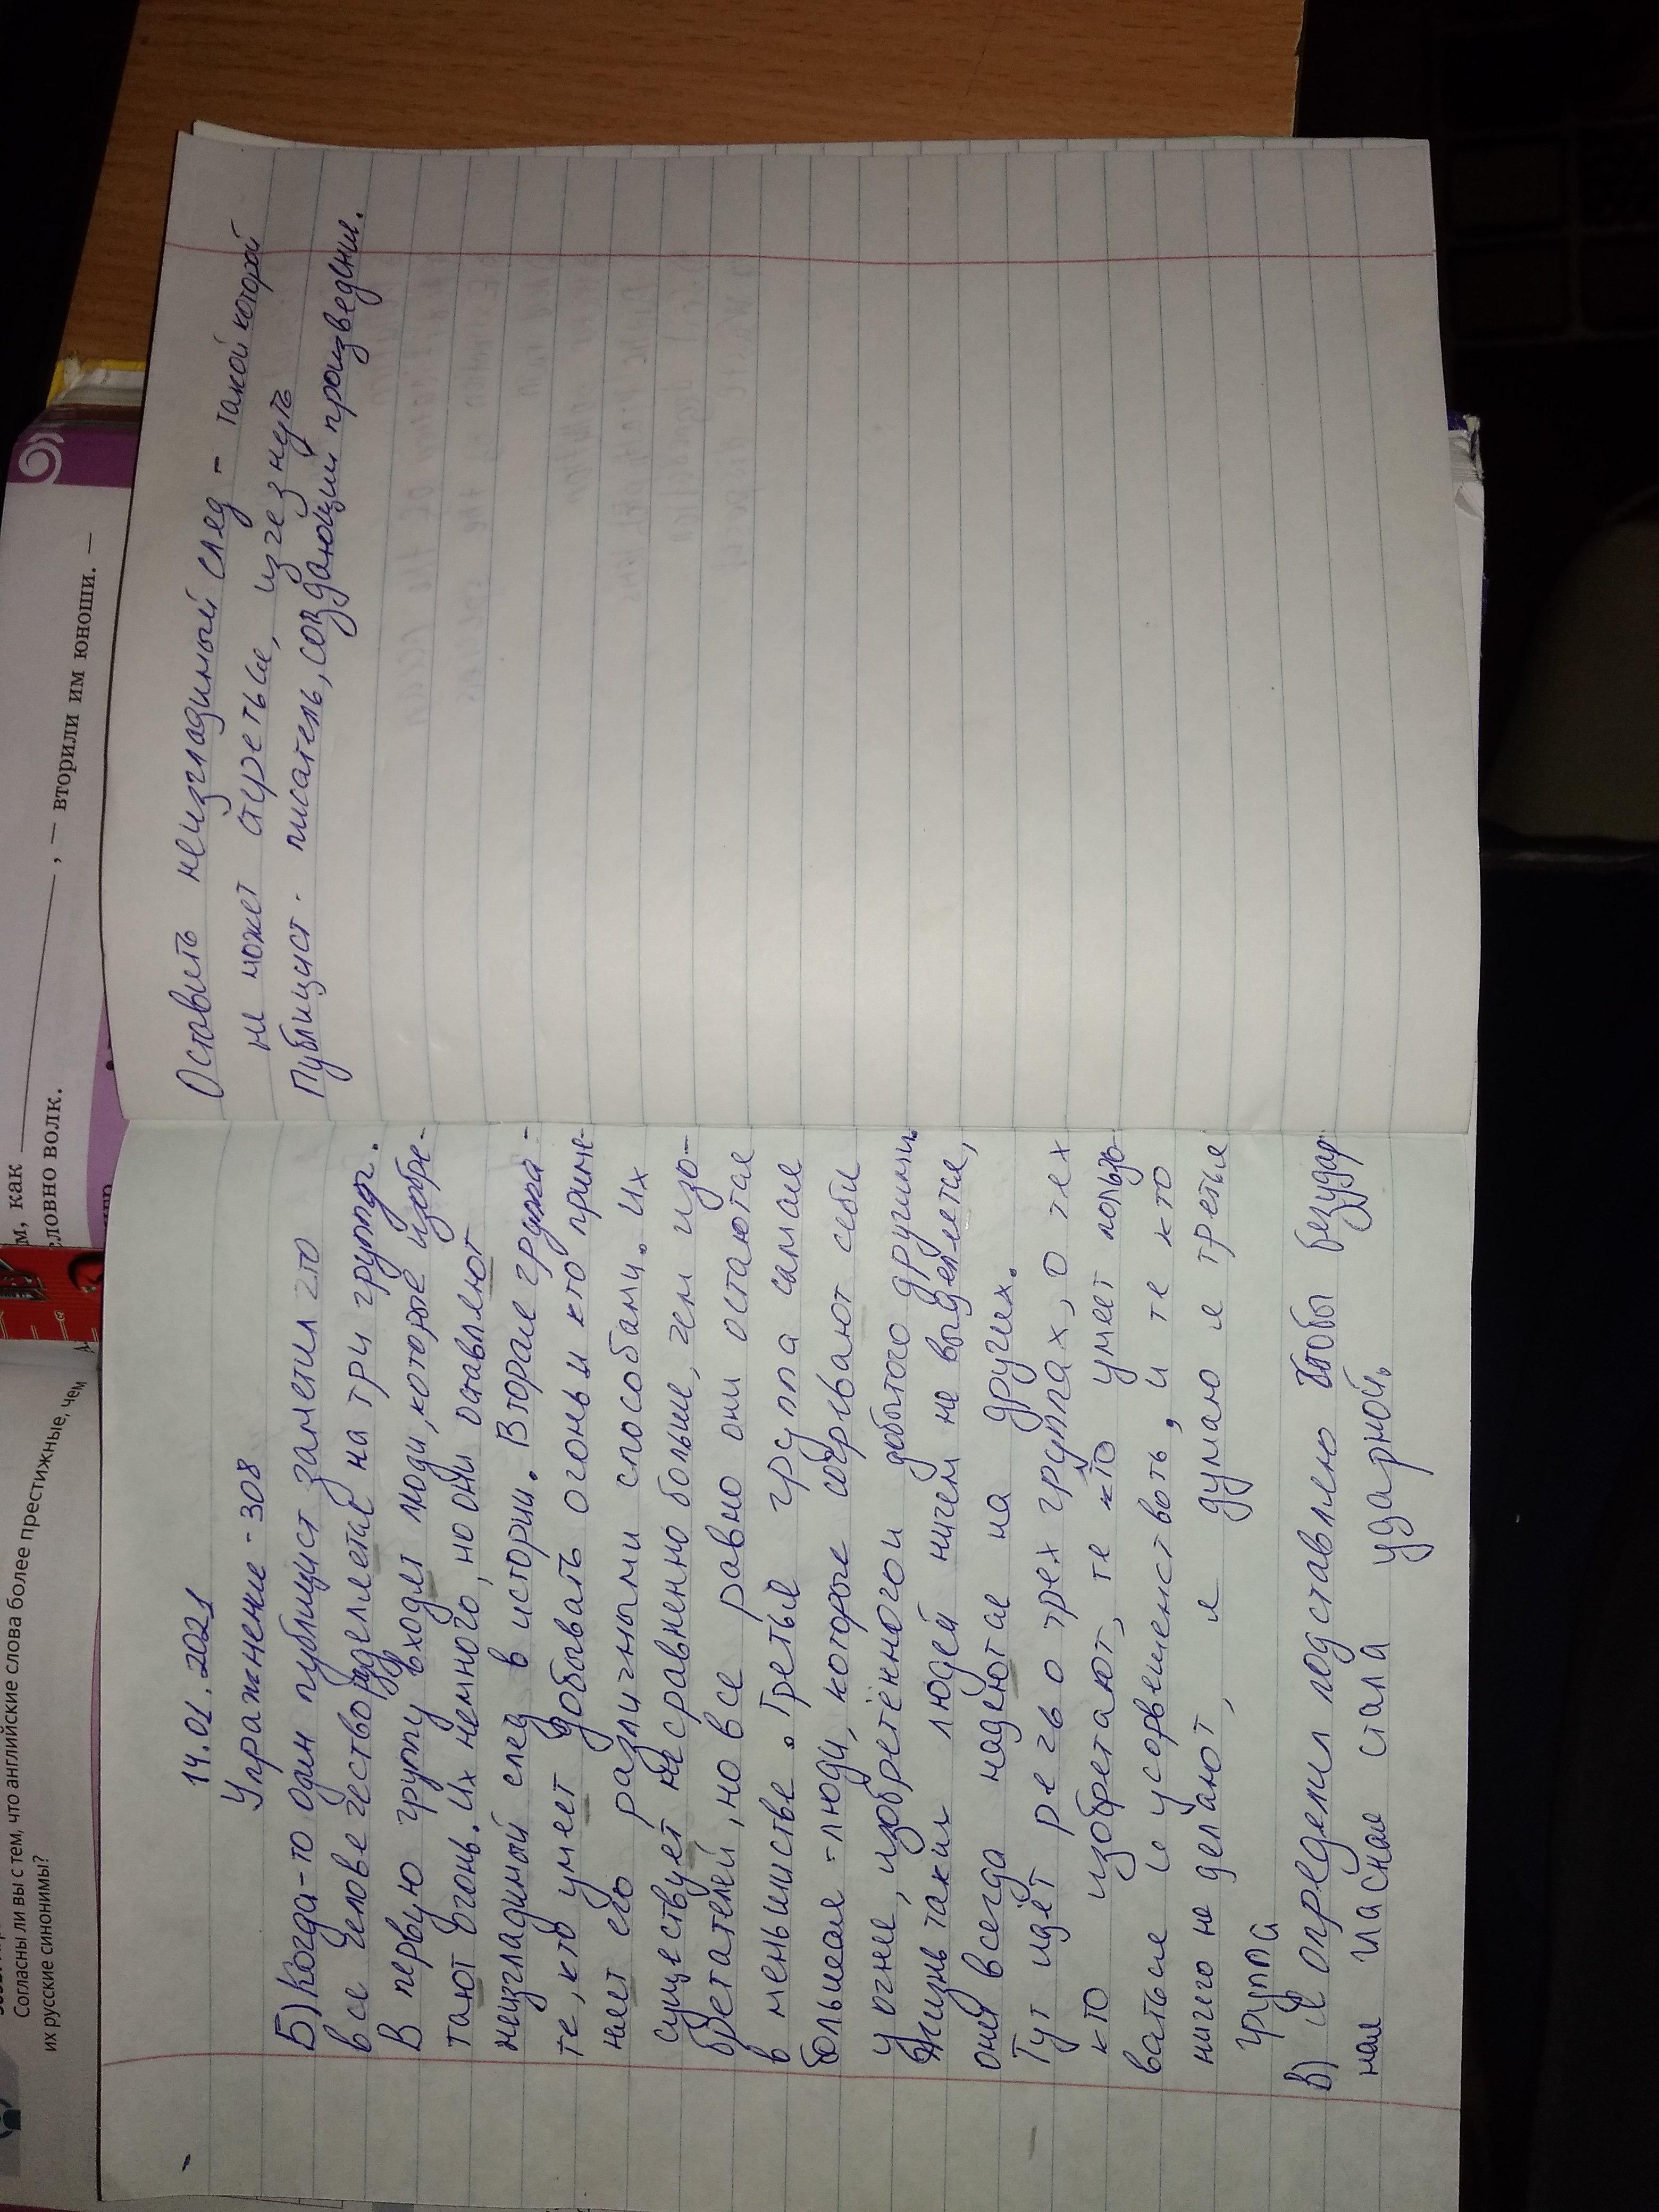 14.01.2021
Упражнение - 308
Б) Когда-то один публицист заметил что
все человечество разделяется на три группы.
В первую группу входят люди, которые изобре-
тают огонь. Их немного, но они оставляют
неизгладимый след в истории. Вторая группа -
те, кто умеет добывать огонь и кто приме-
няет его различными способами. Их
существует несравненно больше, чем изо-
бретателей, но все равно они остаются
в меньшинстве. Третья группа самая
большая - люди, которые согревают себя
у огня, изобретённого и добытого другими.
Жизнь таких людей ничем не выделяется,
они всегда надеются на других.
Тут идёт речь о трех группах, о тех
кто изобретают, те кто умеет пользо-
ваться и усовршенствовоть, и те кто
ничего не делают, я думаю я третья
группа
В) Я определил подставлено чтобы безудар
ная гласная стала ударной.
Оставить неизгладимый след - такой который
не может стереться, изчезнуть
Публицист - писатель, создающий произведения.
Согласны ли вы с тем, что английские слова более престижные, чем
их русские синонимы?
м, как ______ , — вторили им юноши. —
словно волк.